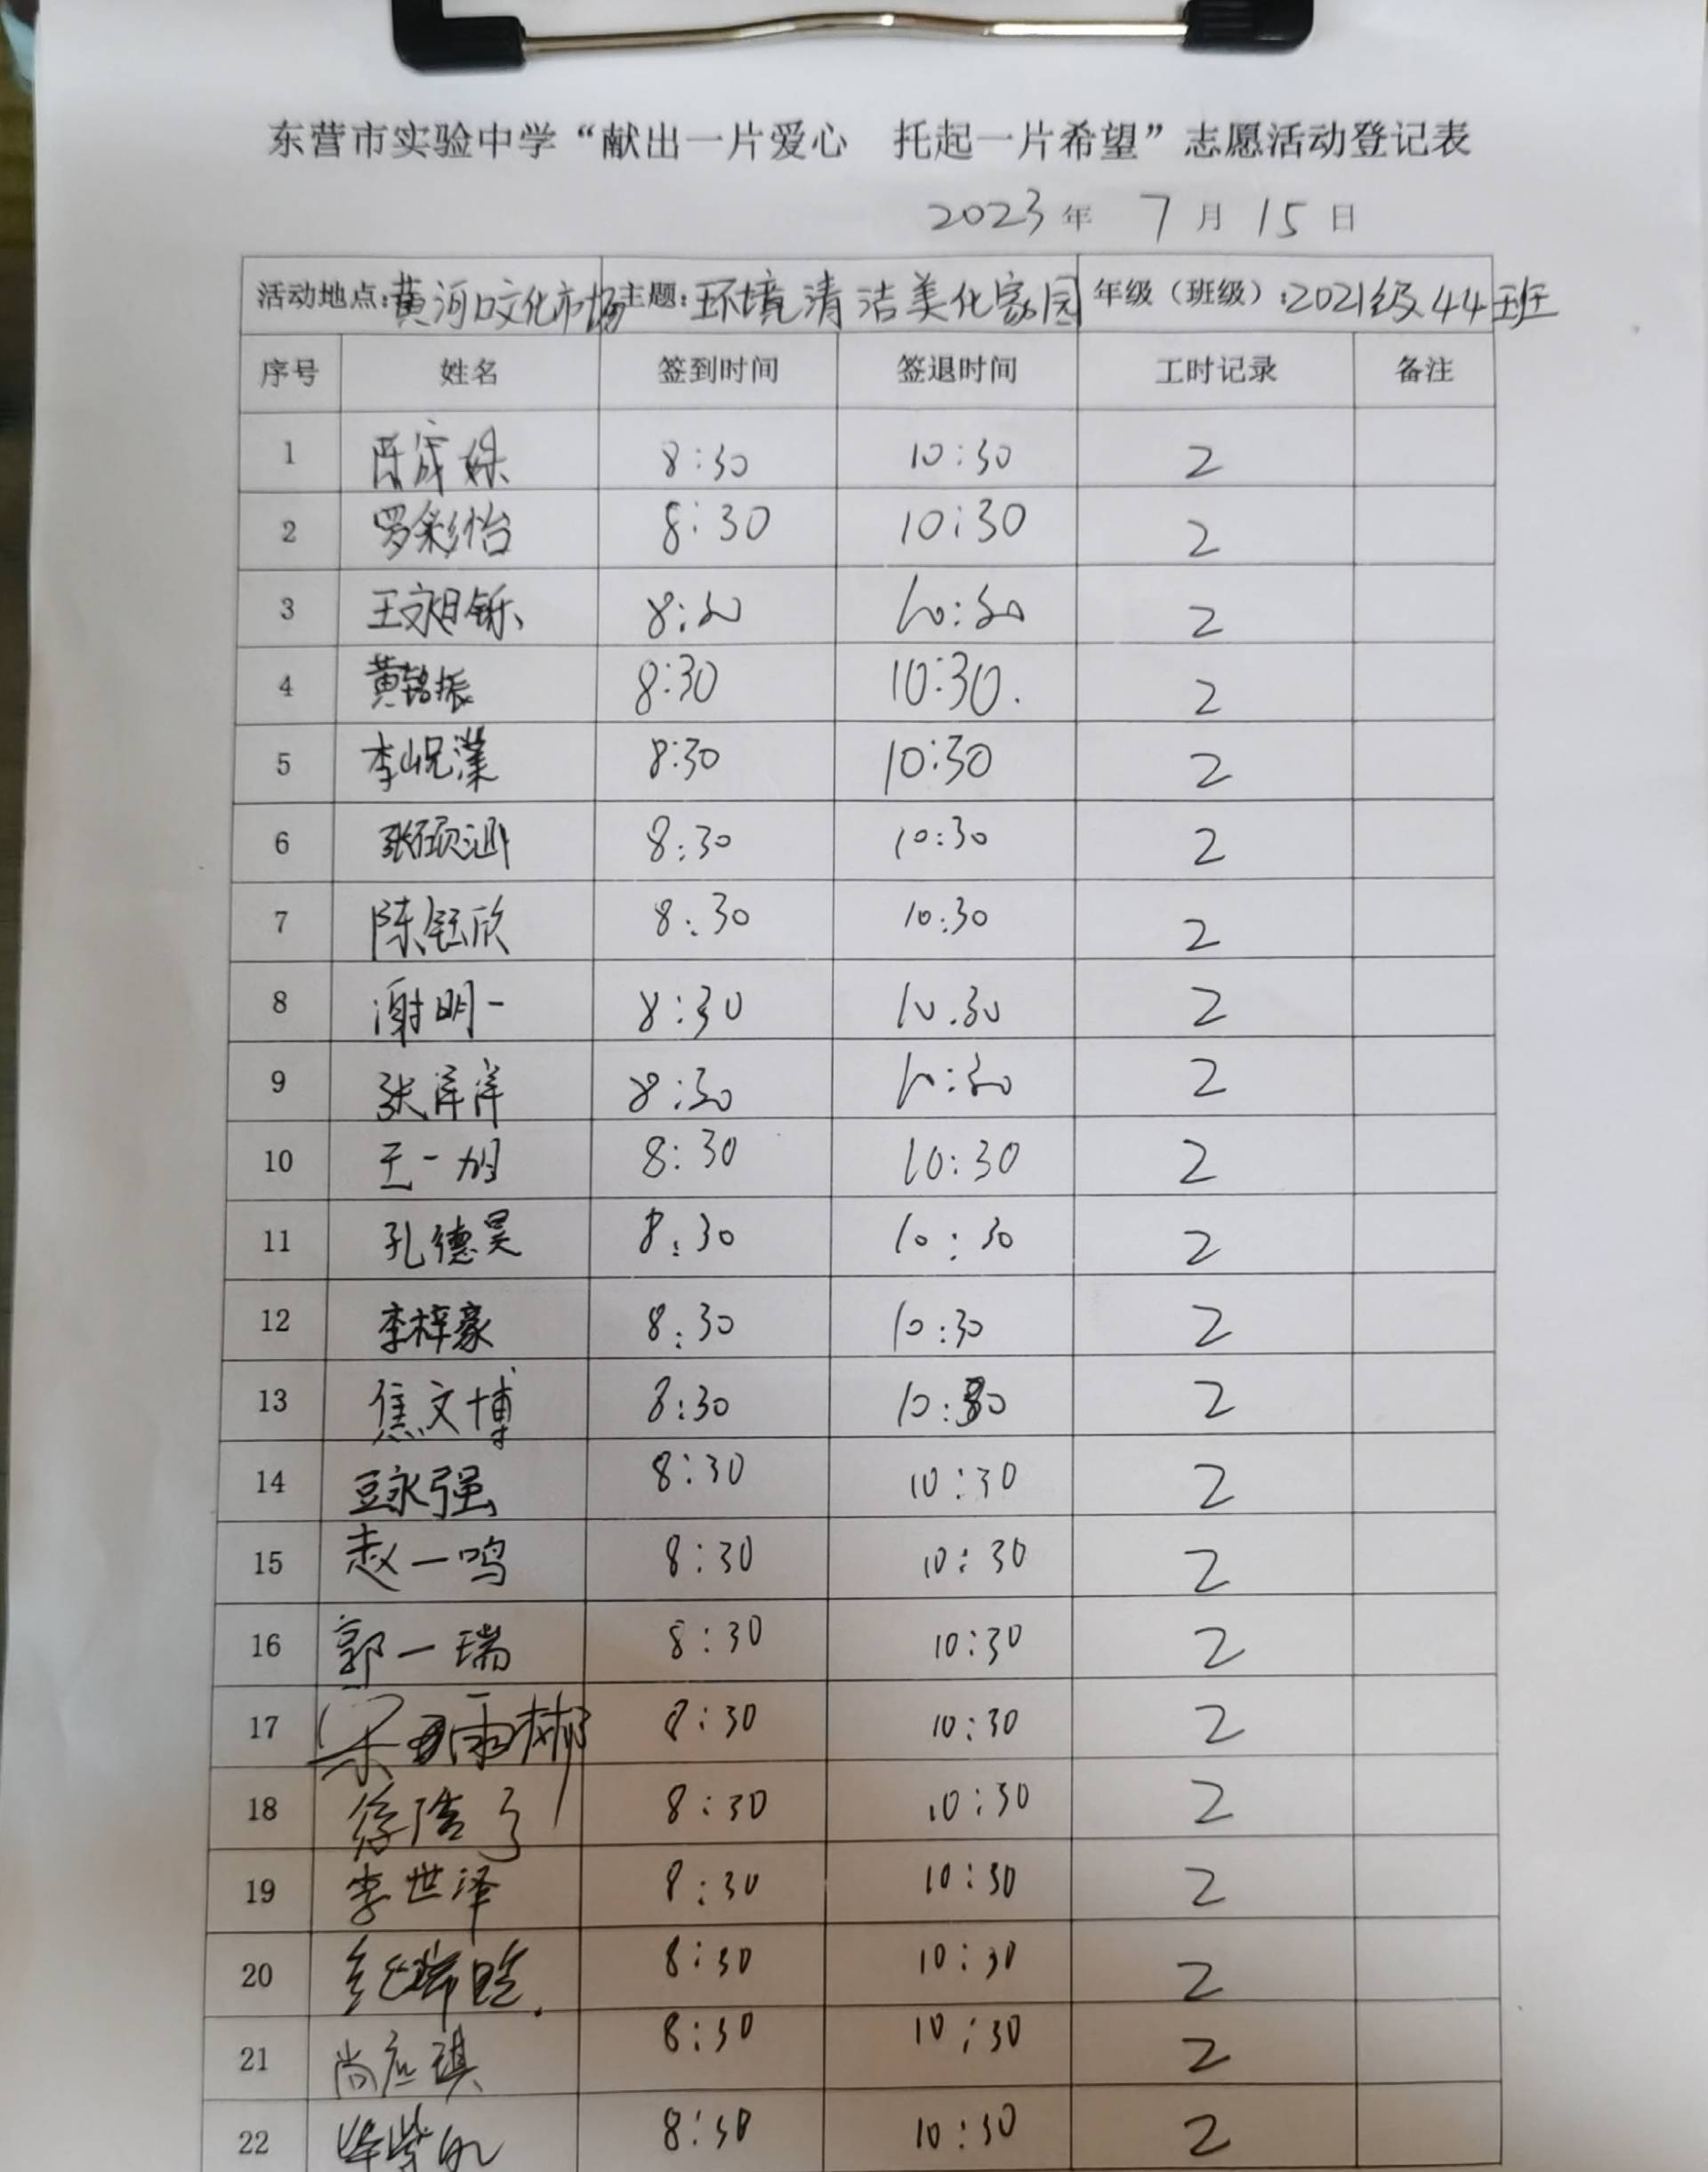 东营市实验中学“献出一片爱心 托起一片希望”志愿活动登记表
2023年 7月15日
活动地点:黄河口文化市场 主题:环境清洁美化家园 年级（班级）:2021级44班
序号 姓名 签到时间 签退时间 工时记录 备注
1 陈 8:30 10:30 2
2 罗彩怡 8:30 10:30 2
3 王 8:30 10:30 2
4 黄铭振 8:30 10:30 2
5 李 8:30 10:30 2
6 张硕涵 8:30 10:30 2
7 陈钰欣 8:30 10:30 2
8 谢明一 8:30 10:30 2
9 张洋洋 8:30 10:30 2
10 王一 8:30 10:30 2
11 孔德昊 8:30 10:30 2
12 李梓豪 8:30 10:30 2
13 焦文博 8:30 10:30 2
14 豆永强 8:30 10:30 2
15 赵一鸣 8:30 10:30 2
16 郭一瑞 8:30 10:30 2
17 宋雨彬 8:30 10:30 2
18 徐浩 8:30 10:30 2
19 李世泽 8:30 10:30 2
20 8:30 10:30 2
21 尚应祺 8:30 10:30 2
22 8:30 10:30 2